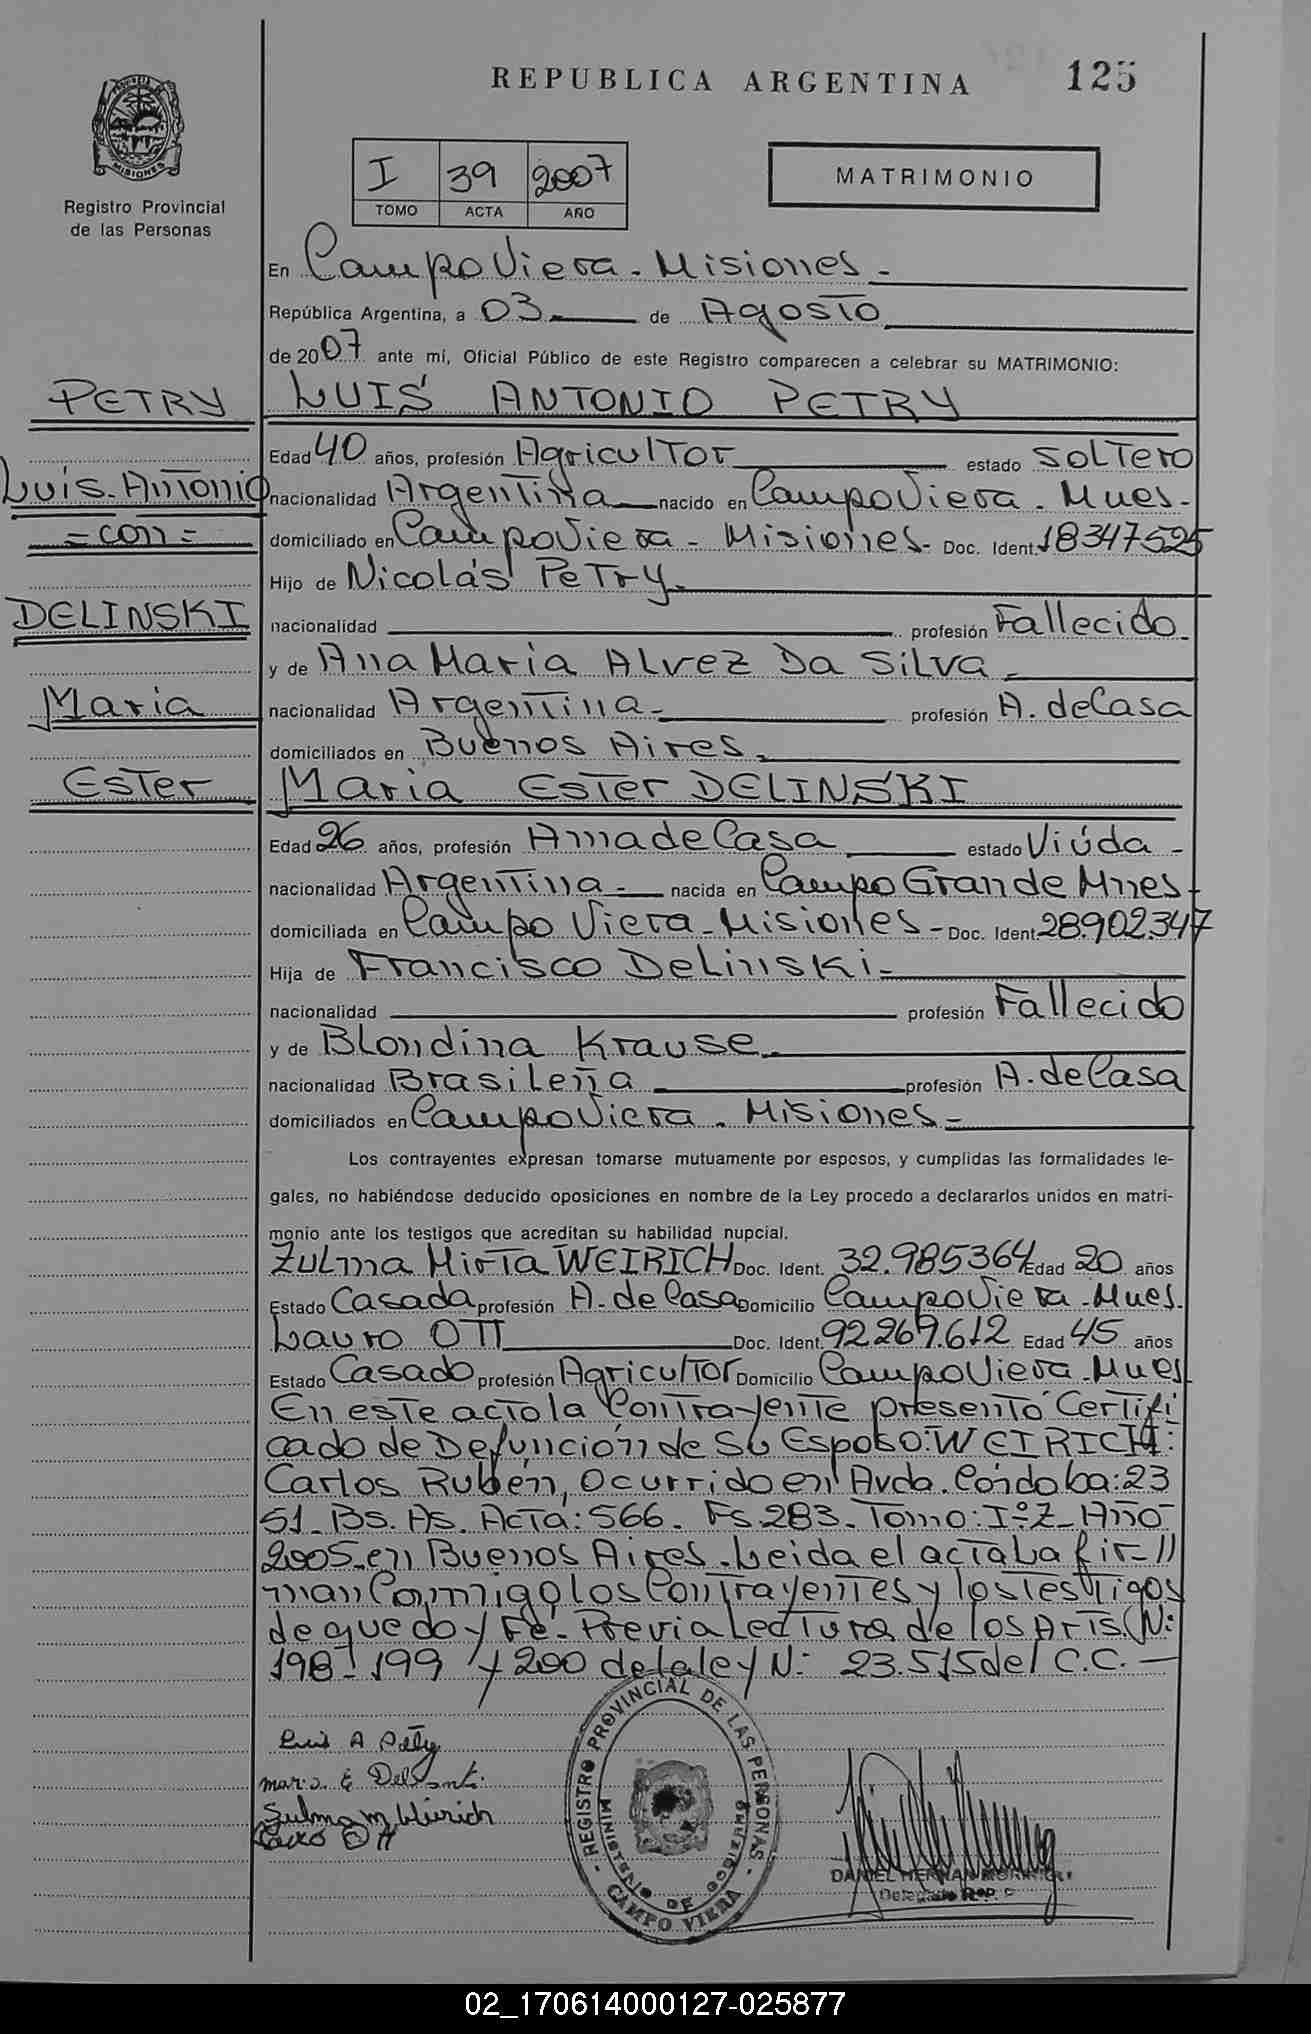 REPUBLICA ARGENTINA 125
MISIONES
Registro Provincial
de las Personas
I 39 2007
TOMO ACTA AÑO
MATRIMONIO
En Campo Viera - Misiones -
República Argentina, a 03 de Agosto
de 2007 ante mí, Oficial Público de este Registro comparecen a celebrar su MATRIMONIO:
PETRY
LUIS ANTONIO PETRY
Edad 40 años, profesión Agricultor estado Soltero
Luis Antonio
nacionalidad Argentina nacido en Campo Viera. Mnes-
=con=
domiciliado en Campo Viera - Misiones - Doc. Ident. 18347525
Hijo de Nicolás Petry.
DELINSKI
nacionalidad profesión Fallecido
y de Ana Maria Alvez Da Silva.
Maria
nacionalidad Argentina - profesión A. de Casa
domiciliados en Buenos Aires.
Ester
Maria Ester DELINSKI
Edad 26 años, profesión Ama de Casa estado Viúda -
nacionalidad Argentina - nacida en Campo Grande Mnes -
domiciliada en Campo Viera - Misiones - Doc. Ident. 28.902.347
Hija de Francisco Delinski -
nacionalidad profesión Fallecido
y de Blondina Krause.
nacionalidad Brasileña profesión A. de Casa
domiciliados en Campo Viera. Misiones -
Los contrayentes expresan tomarse mutuamente por esposos, y cumplidas las formalidades le-
gales, no habiéndose deducido oposiciones en nombre de la Ley procedo a declararlos unidos en matri-
monio ante los testigos que acreditan su habilidad nupcial.
Zulma Mirta WEIRICH Doc. Ident. 32.985364 Edad 20 años
Estado Casada profesión A. de Casa Domicilio Campo Viera - Mnes.
Lauro OTT Doc. Ident. 92.269.612 Edad 45 años
Estado Casado profesión Agricultor Domicilio Campo Viera. Mnes
En este acto la Contrayente presentó Certifi
cado de Defunción de Su Esposo: WEIRICH:
Carlos Rubén, Ocurrido en Avda. Córdoba: 23
51 - Bs. As. Acta: 566. Fs. 283 - Tomo: I°Z - Año
2005 - en Buenos Aires - Leida el acta la fir - //
man Conmigo los Contrayentes y los testigos
de que doy Fé - Previa Lectura de los Arts. N:
198 - 199 y 200 de la ley N: 23.515 del C.C. -
Luis A Petry
Zulma M Weirich
Lauro Ott
- REGISTRO PROVINCIAL DE LAS PERSONAS -
MINISTERIO DE GOBIERNO
CAMPO VIERA
DANIEL HERNAN
Delegado